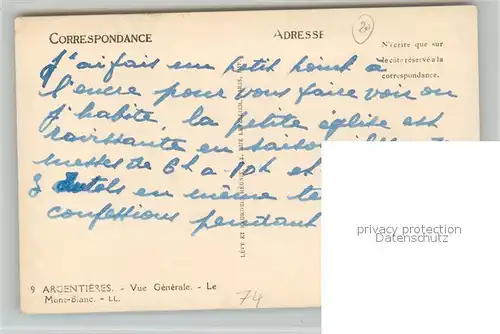 CORRESPONDANCE
ADRESSE
20
N'écrire que sur
le côté réservé à la
correspondance.
J'ai fais un petit point à
l'encre pour vous faire voir ou
j'habite la petite église est
ravissante en saison
messes de 6h à 10h et
3 autels en même te
confessions pendant
LÉVY ET NEURDEIN RÉUNIS
privacy protection
Datenschutz
9 ARGENTIÈRES. - Vue Générale. - Le
Mont-Blanc. - LL.
74